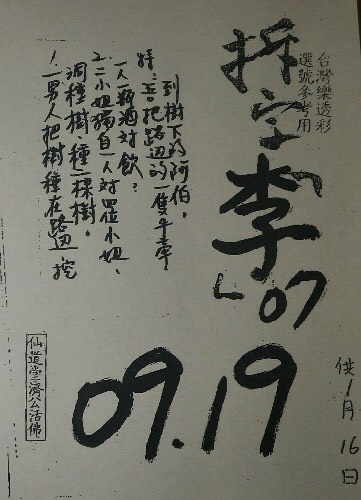 台灣樂透彩
選號參考用
拆字李
07
09.19
供1月16日
1.一男人把樹種在路邊 挖
洞種樹,種一棵樹,
2.二小姐獨自一人對四位小姐、
一人一瓶酒對飲?
把路邊的一隻牛牽
到樹下的阿伯,
仙道堂濟公活佛